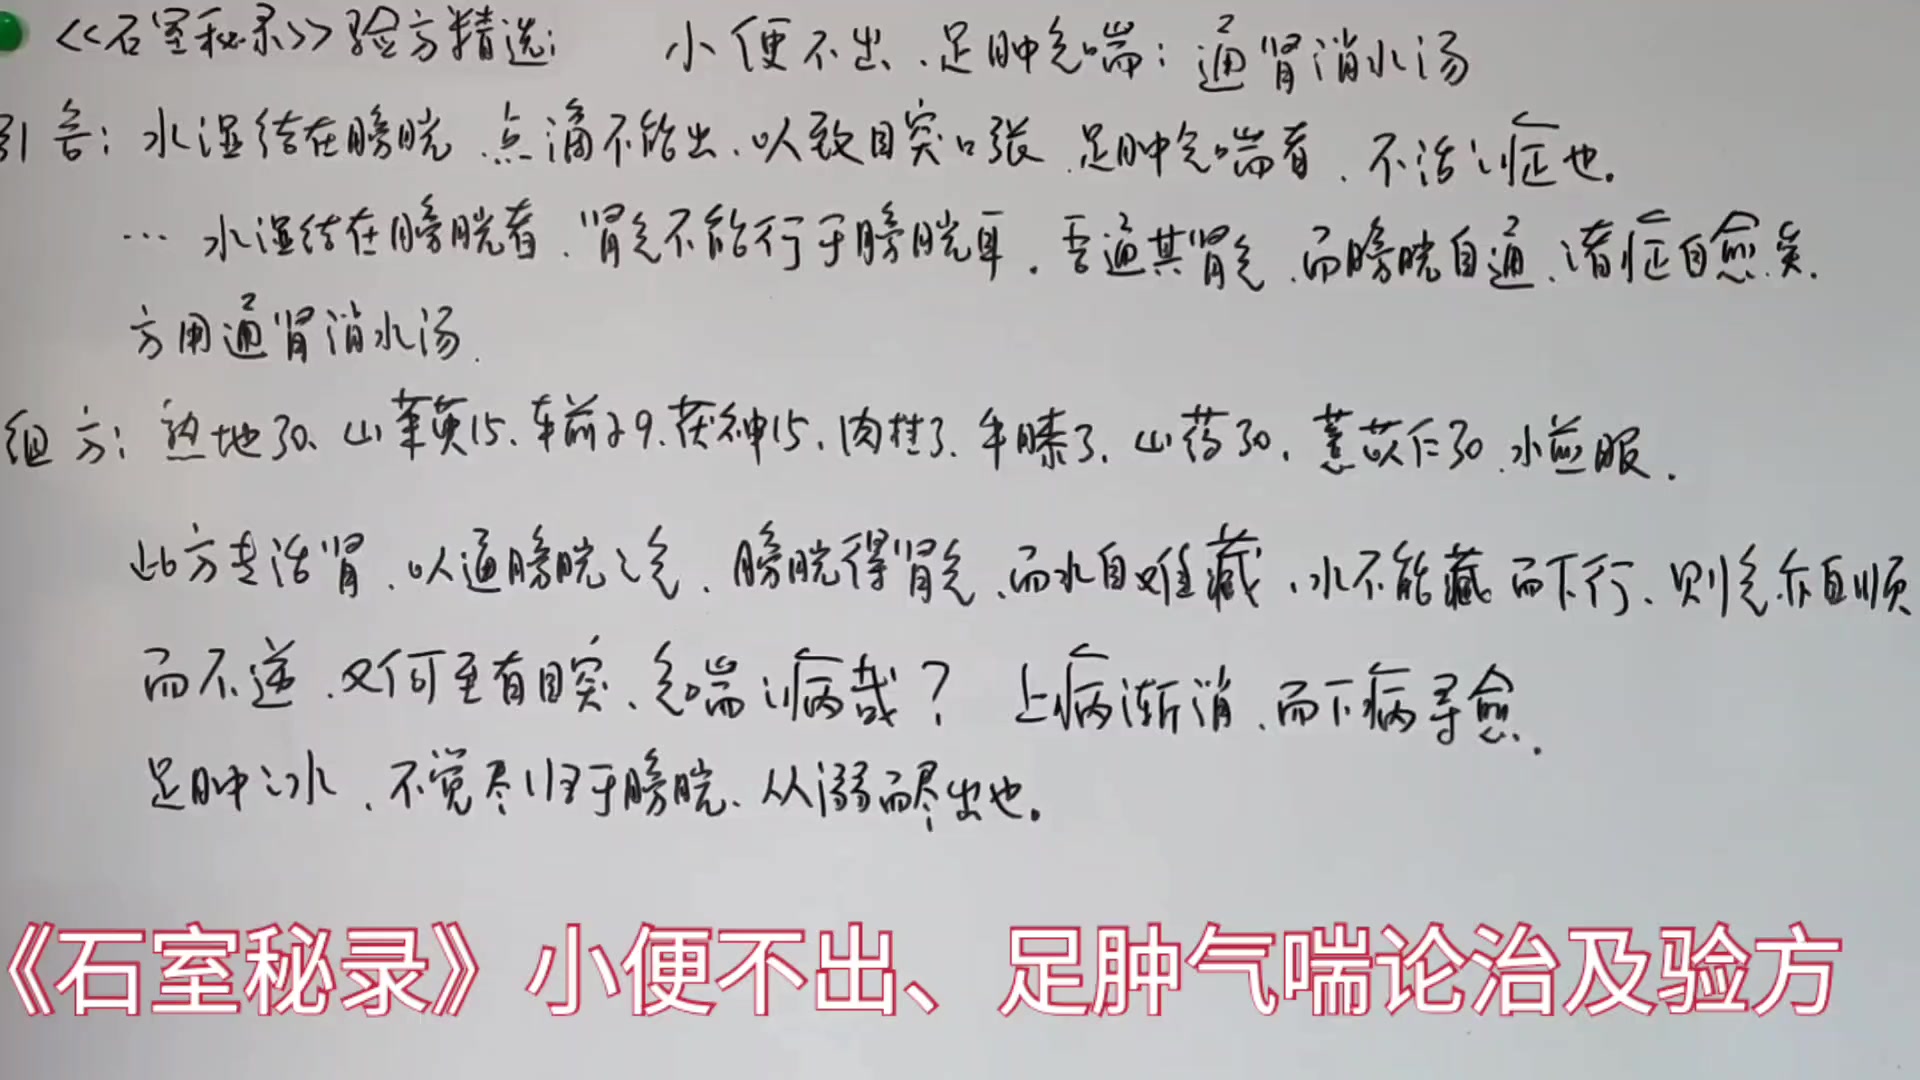 <<石室秘录>>验方精选: 小便不出、足肿气喘:通肾消水汤
引言:水湿结在膀胱、点滴不能出、以致目突口张、足肿气喘者、不治之症也。
… 水湿结在膀胱者、肾气不能行于膀胱耳. 吾通其肾气、而膀胱自通、诸症自愈矣.
方用通肾消水汤.
组方:熟地30、山茱萸15、车前子9、茯神15、肉桂3、牛膝3、山药30、薏苡仁30、水煎服.
此方专治肾、以通膀胱之气、膀胱得肾气、而水自难藏、水不能藏而下行、则气亦自顺
而不逆、又何至有目突、气喘之病哉? 上病渐消、而下病寻愈.
足肿之水、不觉尽归于膀胱、从溺而尽出也。
《石室秘录》小便不出、足肿气喘论治及验方